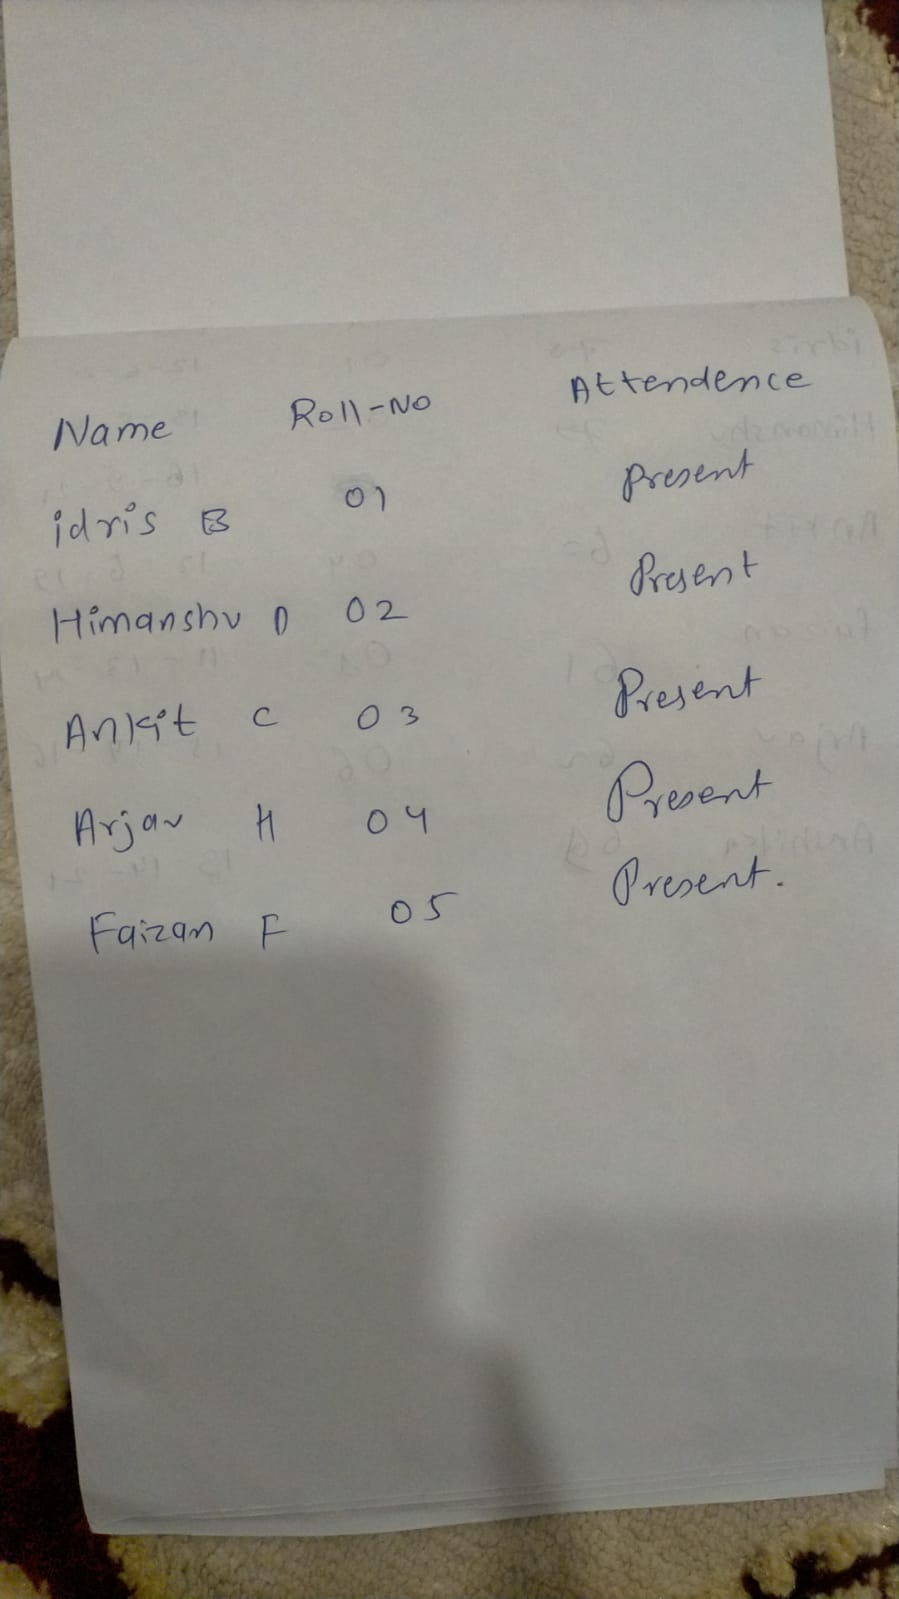 Name Roll-No Attendence
idris B 01 Present
Himanshu D 02 Present
Ankit C 03 Present
Arjav H 04 Present
Faizan F 05 Present.